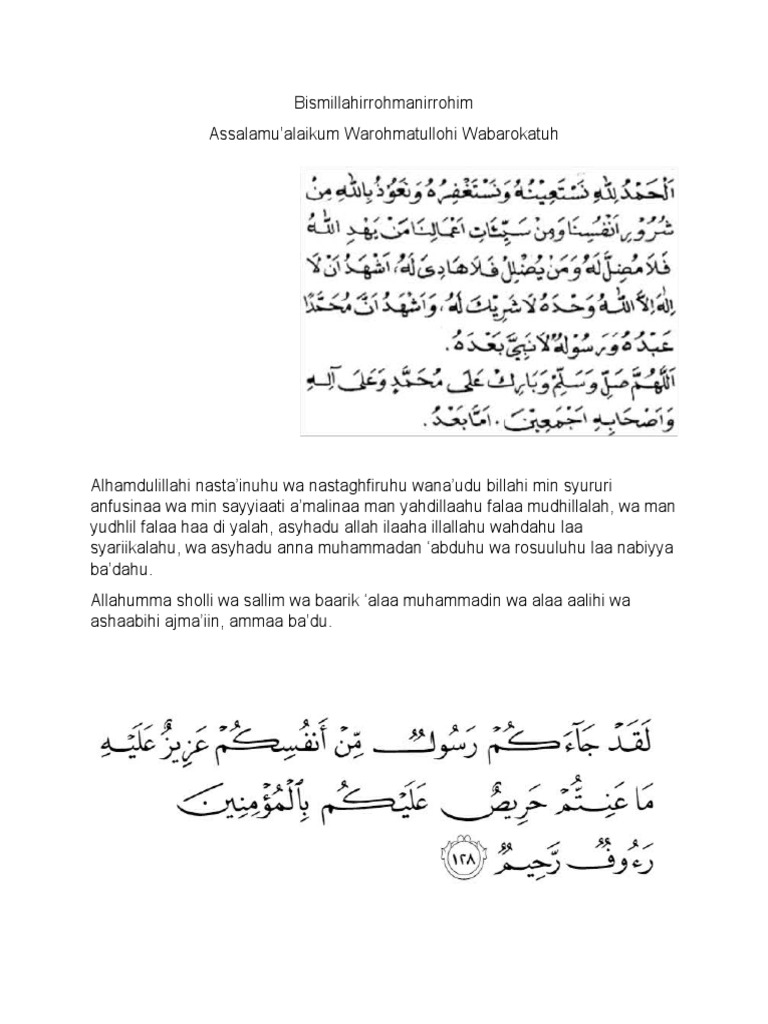 Bismillahirrohmanirrohim
Assalamu’alaikum Warohmatullohi Wabarokatuh
اَلْحَمْدُ لِلّٰهِ نَسْتَعِيْنُهُ وَنَسْتَغْفِرُهُ وَنَعُوْذُ بِاللّٰهِ مِنْ
شُرُوْرِ اَنْفُسِنَا وَمِنْ سَيِّئَاتِ اَعْمَالِنَا مَنْ يَهْدِ اللّٰهُ
فَلَا مُضِلَّ لَهُ وَمَنْ يُضْلِلْ فَلَا هَادِىَ لَهُ، اَشْهَدُ اَنْ لَا
اِلٰهَ اِلَّا اللّٰهُ وَحْدَهُ لَا شَرِيْكَ لَهُ، وَاَشْهَدُ اَنَّ مُحَمَّدًا
عَبْدُهُ وَرَسُوْلُهُ لَا نَبِيَّ بَعْدَهُ.
اَللّٰهُمَّ صَلِّ وَسَلِّمْ وَبَارِكْ عَلَى مُحَمَّدٍ وَعَلَى آلِهِ
وَاَصْحَابِهِ اَجْمَعِيْنَ. اَمَّا بَعْدُ.
Alhamdulillahi nasta’inuhu wa nastaghfiruhu wana’udu billahi min syururi
anfusinaa wa min sayyiaati a’malinaa man yahdillaahu falaa mudhillalah, wa man
yudhlil falaa haa di yalah, asyhadu allah ilaaha illallahu wahdahu laa
syariikalahu, wa asyhadu anna muhammadan ‘abduhu wa rosuuluhu laa nabiyya
ba’dahu.
Allahumma sholli wa sallim wa baarik ‘alaa muhammadin wa alaa aalihi wa
ashaabihi ajma’iin, ammaa ba’du.
لَقَدْ جَآءَكُمْ رَسُولٌ مِّنْ أَنفُسِكُمْ عَزِيزٌ عَلَيْهِ
مَا عَنِتُّمْ حَرِيصٌ عَلَيْكُم بِٱلْمُؤْمِنِينَ
رَءُوفٌ رَّحِيمٌ ١٢٨